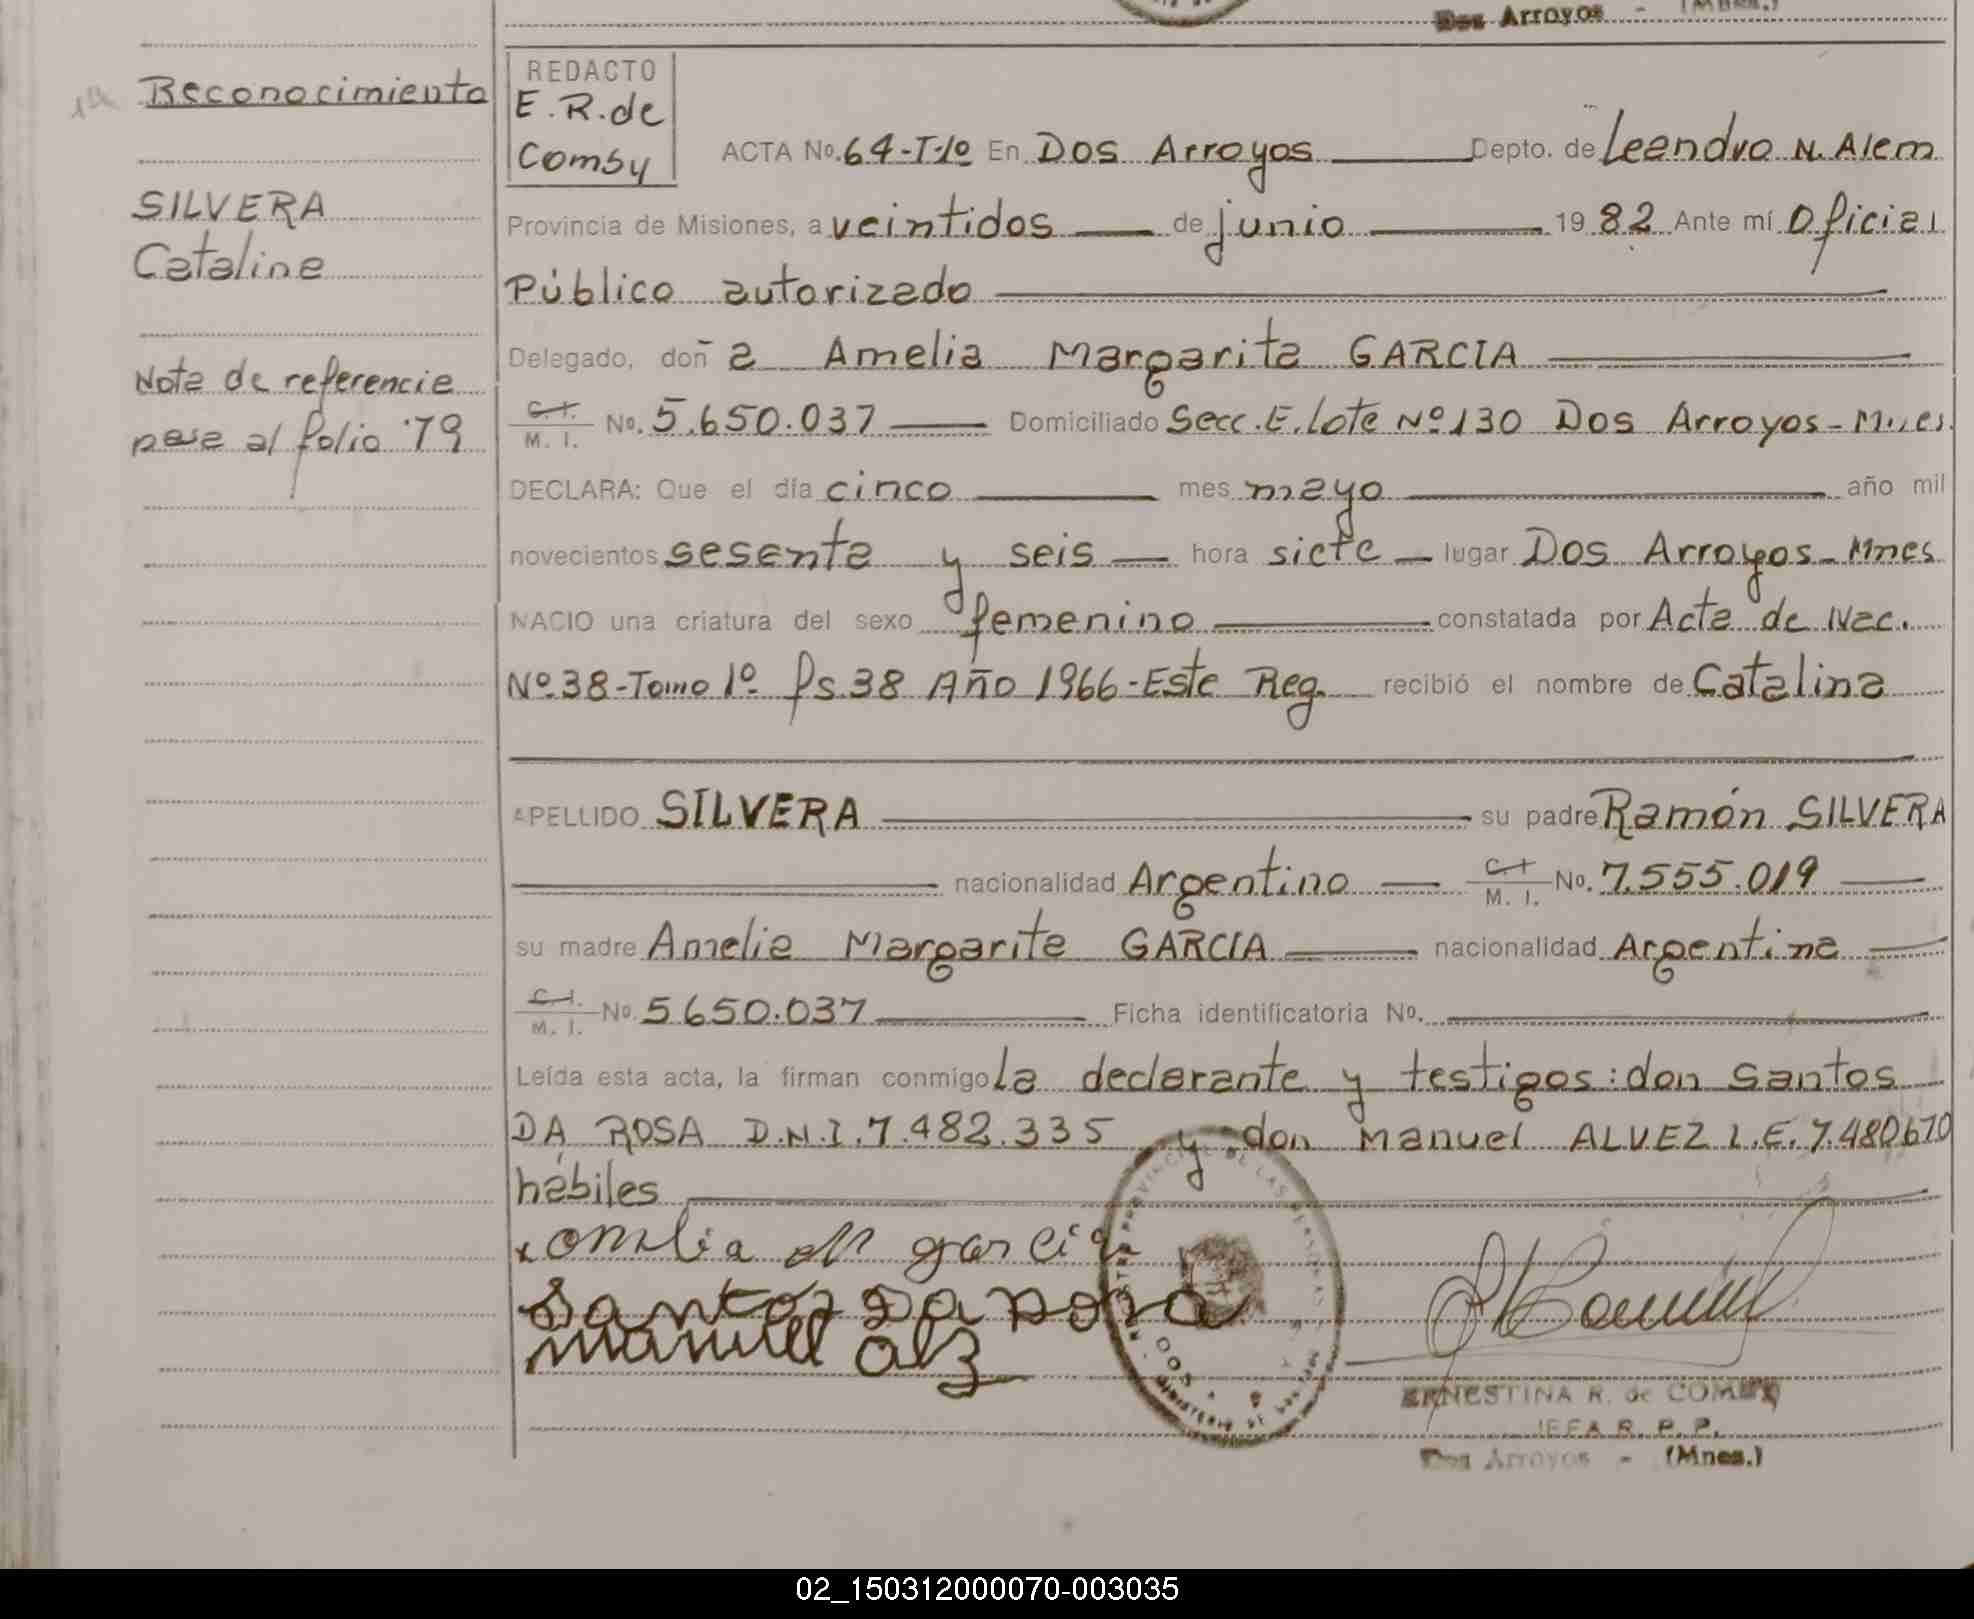 Dos Arroyos - (Mnes.)
Reconocimiento
SILVERA
Catalina
Nota de referencia
pasa al folio 79
REDACTO
E. R. de
Comsy
ACTA No. 64-T-1º En Dos Arroyos Depto. de Leandro N. Alem
Provincia de Misiones, a veintidos de junio 1982 Ante mí Oficial
Público autorizado
Delegado, doñ a Amelia Margarita GARCIA
C. I. M. I. No. 5.650.037 Domiciliado Secc. E. Lote Nº 130 Dos Arroyos - Mnes.
DECLARA: Que el día cinco mes mayo año mil
novecientos sesenta y seis hora siete lugar Dos Arroyos - Mnes
NACIO una criatura del sexo femenino constatada por Acta de Nac.
Nº 38-Tomo 1º fs 38 Año 1966-Este Reg. recibió el nombre de Catalina
APELLIDO SILVERA su padre Ramón SILVERA
nacionalidad Argentino C. I. M. I. No. 7.555.019
su madre Amelia Margarita GARCIA nacionalidad Argentina
C. I. M. I. No. 5650.037 Ficha identificatoria No.
Leída esta acta, la firman conmigo la declarante y testigos: don Santos
DA ROSA D.N.I. 7.482.335 y don Manuel ALVEZ L.E. 7.480670
hábiles
x omelia m garcia
Santos Da Rosa
manuel alz
ERNESTINA R. de COMSY
JEFA R. P. P.
Dos Arroyos - (Mnes.)
02_150312000070-003035